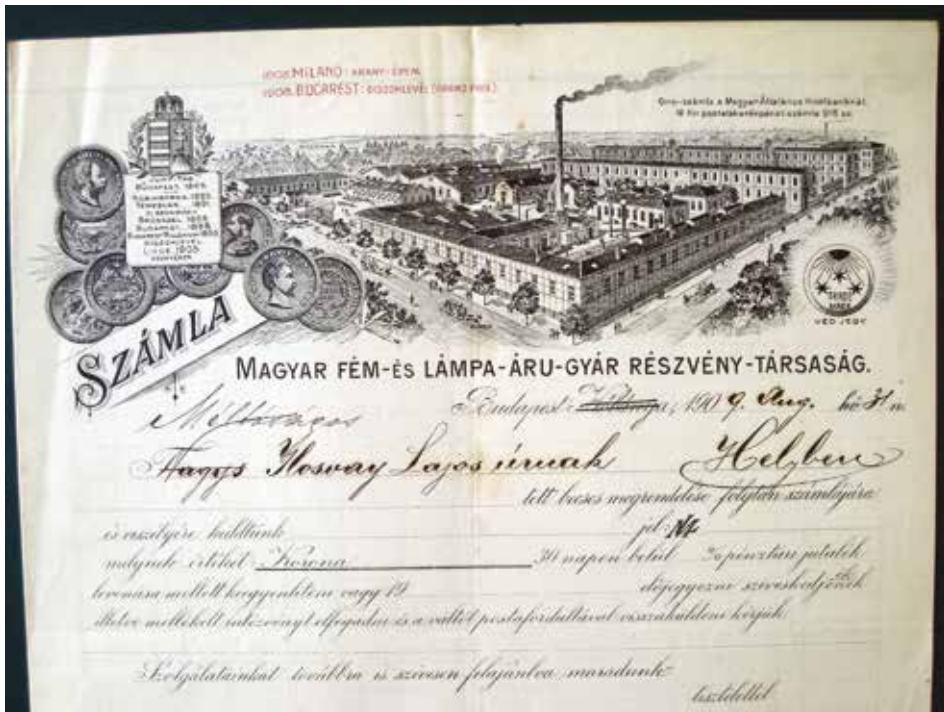 1906. MILANO: ARANY-ÉREM.
1906. BUCAREST: DISZOKLEVÉL (GRAND PRIX.)
Giro-számla a Magyar Általános Hitelbanknál.
BUDAPEST, 1885.
TEMESVÁR, 1891.
DISZOKLEVÉL
1905
SZÁMLA
VÉDJEGY
MAGYAR FÉM-ÉS LÁMPA-ÁRU-GYÁR RÉSZVÉNY-TÁRSASÁG.
Méltóságos
Budapest-Kőbánya, 1909. Aug. hó 31 n.
Nagys Ilosvay Lajos úrnak Helyben
tett becses megrendelése folytán számlájára
és veszélyére küldtünk jel:
melynek értékét Korona 30 napon belül % pénztári jutalék
levonása mellett kiegyenlíteni vagy 19 előjegyezni szíveskedjék
illetve mellékelt intézvényt elfogadni és a váltót postafordultával visszaküldeni kérjük.
Szolgálatainkat továbbra is szívesen felajánlva maradunk
tisztelettel